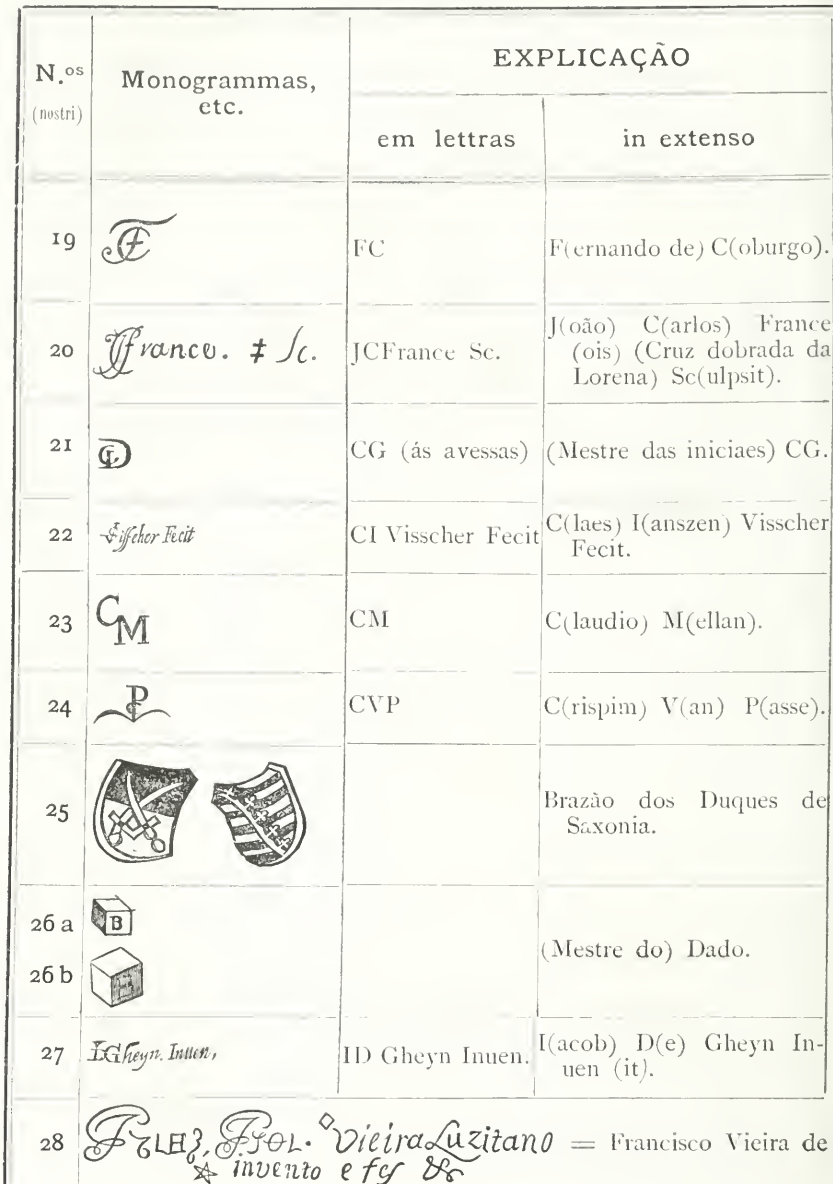 N.os
(nostri)
Monogrammas,
etc.
EXPLICAÇÃO
em lettras
in extenso
19
FC
FC
F(ernando de) C(oburgo).
20
JCFrance. ‡ Sc.
JCFrance Sc.
J(oão) C(arlos) France
(ois) (Cruz dobrada da
Lorena) Sc(ulpsit).
21
CG
CG (ás avessas)
(Mestre das iniciaes) CG.
22
CIVisscher Fecit
CI Visscher Fecit
C(laes) I(anszen) Visscher
Fecit.
23
CM
CM
C(laudio) M(ellan).
24
CVP
CVP
C(rispim) V(an) P(asse).
25
Brazão dos Duques de
Saxonia.
26 a
B
26 b
(Mestre do) Dado.
27
IDGheyn. Inuen,
ID Gheyn Inuen.
I(acob) D(e) Gheyn In-
uen (it).
28
Vieira Luzitano = Francisco Vieira de
invento e